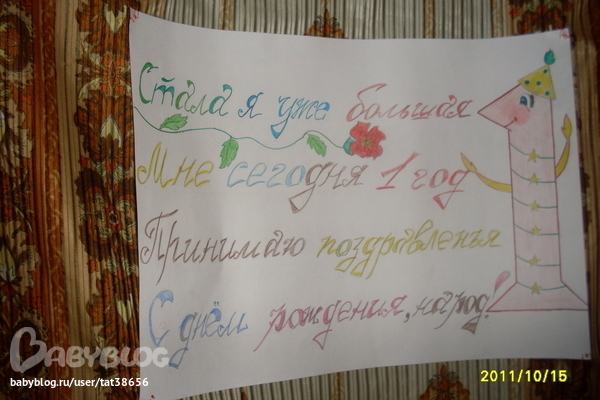 Стала я уже большая
Мне сегодня 1 год
Принимаю поздравленья
С днём рождения, народ!
BABYBLOG
babyblog.ru/user/tat38656
2011/10/15